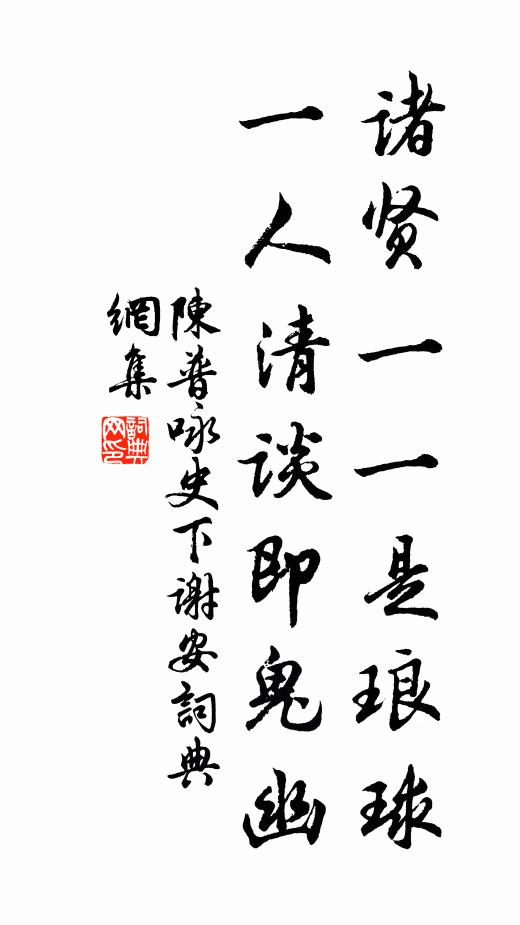 诸贤一一是琅球
一人清谈即鬼幽
陳普咏史下谢安詞典
網集
詞典網印